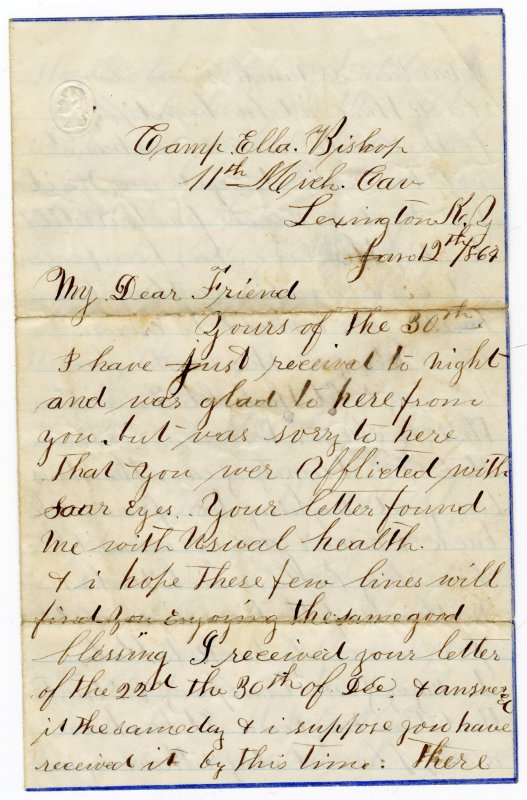 Camp. Ella. Bishop
11th Mich. Cav
Lexington Ky
Jan 12th/1864
My Dear Friend
Yours of the 30th.
I have just received to night
and was glad to here from
you. but was sorry to here
that you wer Afflicted with
Soar Eyes. Your letter found
me with Usual health.
& i hope these few lines will
find you Enjoying the same good
blessing I received your letter
of the 22d the 30th of Dec & answerd
it the same day & i suppose you have
received it by this time: There